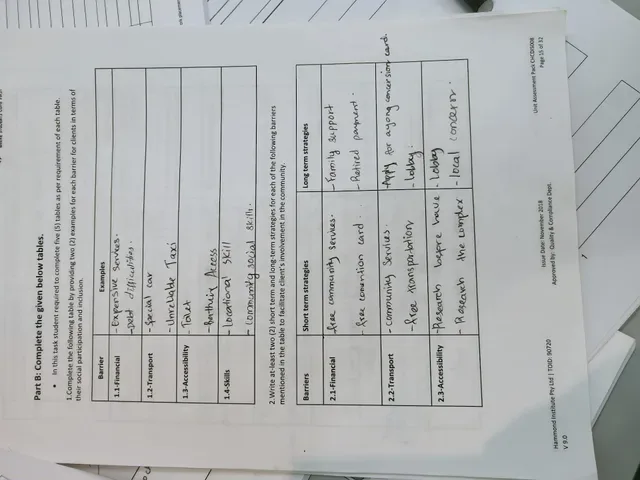 Part B: Complete the given below tables.
• In this task student required to complete five (5) tables as per requirement of each table.
1.Complete the following table by providing two (2) examples for each barrier for clients in terms of
their social participation and inclusion.
Barrier Examples
1.1-Financial - Expensive services.
- Debt difficulties.
1.2-Transport - special car
- Unreliable Taxi
1.3-Accessibility - Toilet
- Bathing Access
1.4-Skills - Locational skill
- Community social skill.
2.Write at-least two (2) short term and long-term strategies for each of the following barriers
mentioned in the table to facilitate client's involvement in the community.
Barriers Short term strategies Long term strategies
2.1-Financial - free community services. - Family support
- free card. - Retired payment.
2.2-Transport - Community Services. - Apply for conversion card.
- free transportation - Lobby.
2.3-Accessibility - Research before have - Lobby
- Research the complex - local concern.
Hammond Institute Pty Ltd | TOID: 90720 Issue Date: November 2018 Unit Assessment Pack
V 9.0 Approved by: Quality & Compliance Dept. Page 15 of 32